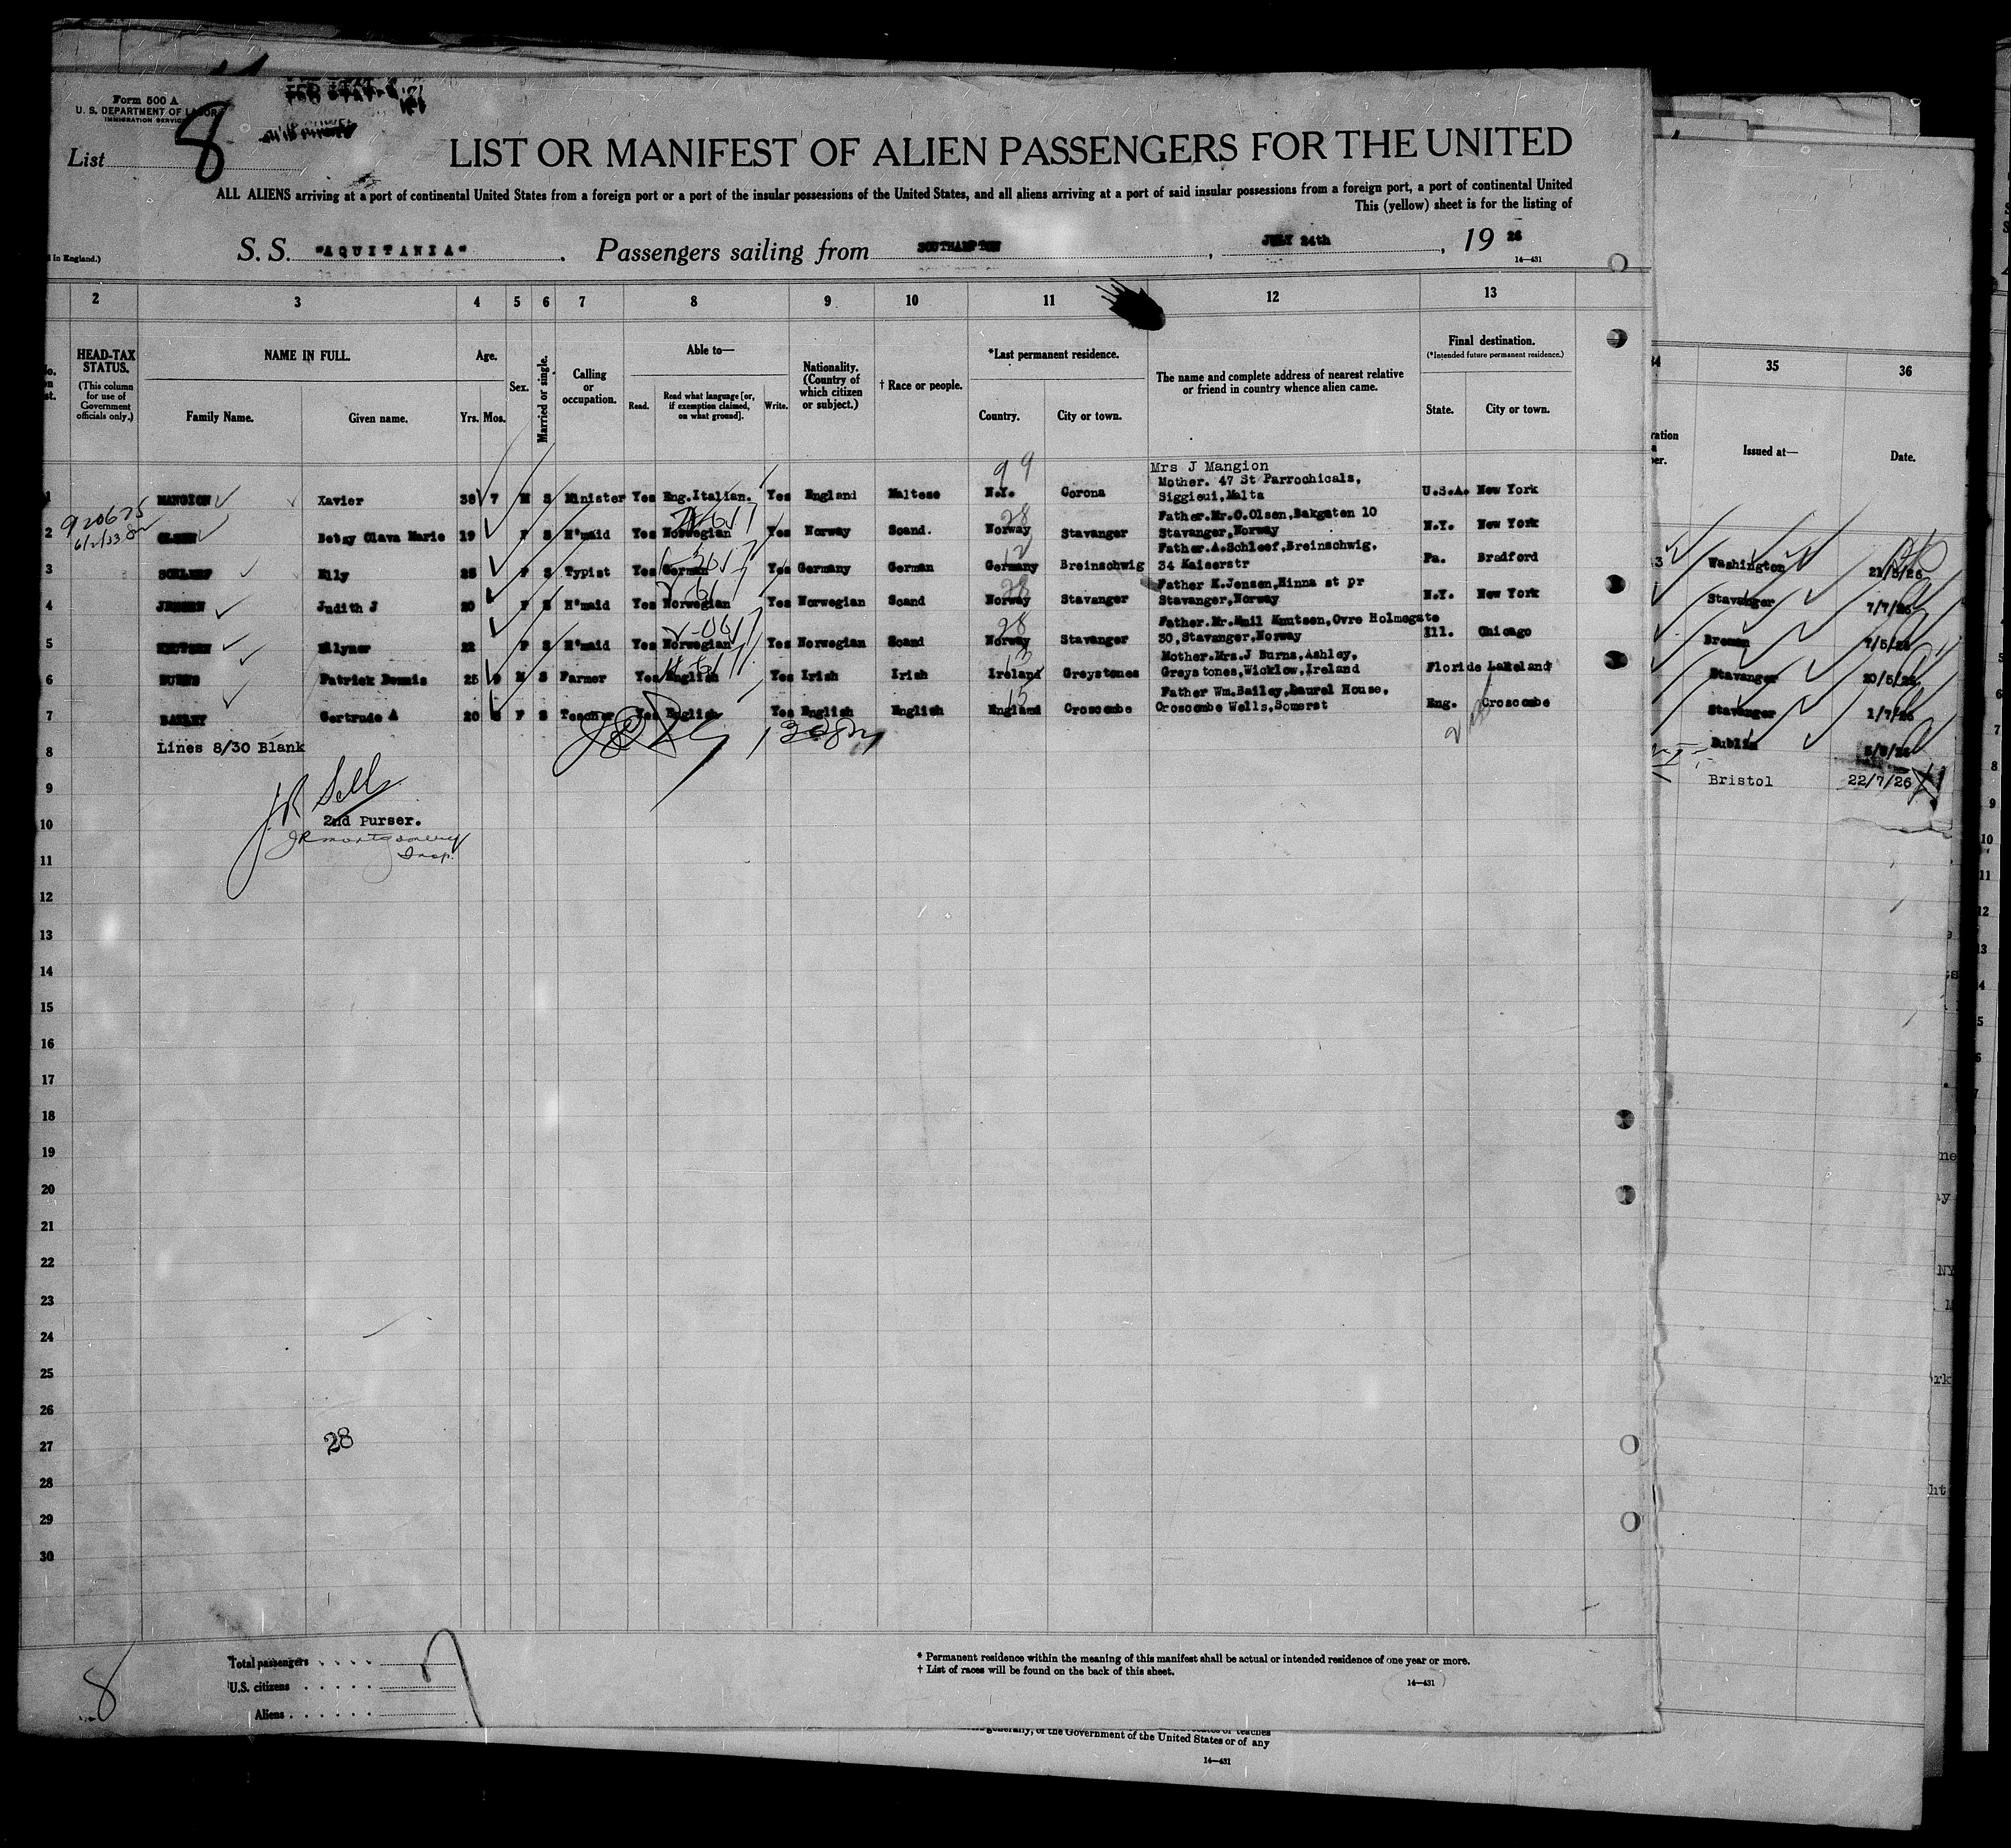 Form 500 A
U. S. DEPARTMENT OF LABOR
IMMIGRATION SERVICE
List 8
LIST OR MANIFEST OF ALIEN PASSENGERS FOR THE UNITED
ALL ALIENS arriving at a port of continental United States from a foreign port or a port of the insular possessions of the United States, and all aliens arriving at a port of said insular possessions from a foreign port, a port of continental United
This (yellow) sheet is for the listing of
in England.)
S. S. "AQUITANIA". Passengers sailing from SOUTHAMPTON, JULY 24th, 19 26
14—431
2 3 4 5 6 7 8 9 10 11 12 13
HEAD-TAX STATUS. (This column for use of Government officials only.)
NAME IN FULL. Family Name. Given name.
Age. Yrs. Mos.
Sex.
Married or single.
Calling or occupation.
Able to— Read. Read what language [or, if exemption claimed, on what ground]. Write.
Nationality. (Country of which citizen or subject.)
† Race or people.
*Last permanent residence. Country. City or town.
The name and complete address of nearest relative or friend in country whence alien came.
Final destination. (*Intended future permanent residence.) State. City or town.
34 35 36
Issued at— Date.
99
1 MANGION Xavier 38 7 M S Minister Yes Eng.Italian. Yes England Maltese N.Y. Corona Mrs J Mangion Mother. 47 St Parrochicals, Siggieui,Malta U.S.A. New York
920675
6/2/33
2 OLSEN Betsy Clava Marie 19 F S H'maid Yes Norwegian Yes Norway Scand. Norway Stavanger Father.Mr.O.Olsen,Bakgaten 10 Stavanger,Norway N.Y. New York
28
3 SCHLEEF Elly 25 F S Typist Yes German Yes Germany German Germany Breinschwig Father.A.Schleef,Breinschwig, 34 Kaiserstr Pa. Bradford
12
4 JENSEN Judith J 20 F S H'maid Yes Norwegian Yes Norwegian Scand Norway Stavanger Father K.Jensen,Hinna st pr Stavanger,Norway N.Y. New York
28
5 KNUTSEN Ellyner 22 F S H'maid Yes Norwegian Yes Norwegian Scand Norway Stavanger Father.Mr.Emil Knutsen,Ovre Holmegate 30,Stavanger,Norway Ill. Chicago
28
6 BURNS Patrick Dennis 25 M S Farmer Yes English Yes Irish Irish Ireland Greystones Mother.Mrs.J Burns,Ashley, Greystones,Wicklow,Ireland Floride Lakeland
13
7 BAILEY Gertrude A 20 F S Teacher Yes English Yes English English England Croscombe Father Wm.Bailey,Laurel House, Croscombe Wells,Somerst Eng. Croscombe
15
8 Lines 8/30 Blank
Washington 21/5/26
Stavanger 7/7/26
Bremen 7/5/26
Stavanger 20/5/26
Stavanger 1/7/26
Dublin
Bristol 22/7/26
J R Sell
2nd Purser.
JR Montgomery
Insp.
9
10
11
12
13
14
15
16
17
18
19
20
21
22
23
24
25
26
27
28
28
29
30
Total passengers
U.S. citizens
Aliens
7
8
* Permanent residence within the meaning of this manifest shall be actual or intended residence of one year or more.
† List of races will be found on the back of this sheet.
14—431
generally, or the Government of the United States or of any
14—431